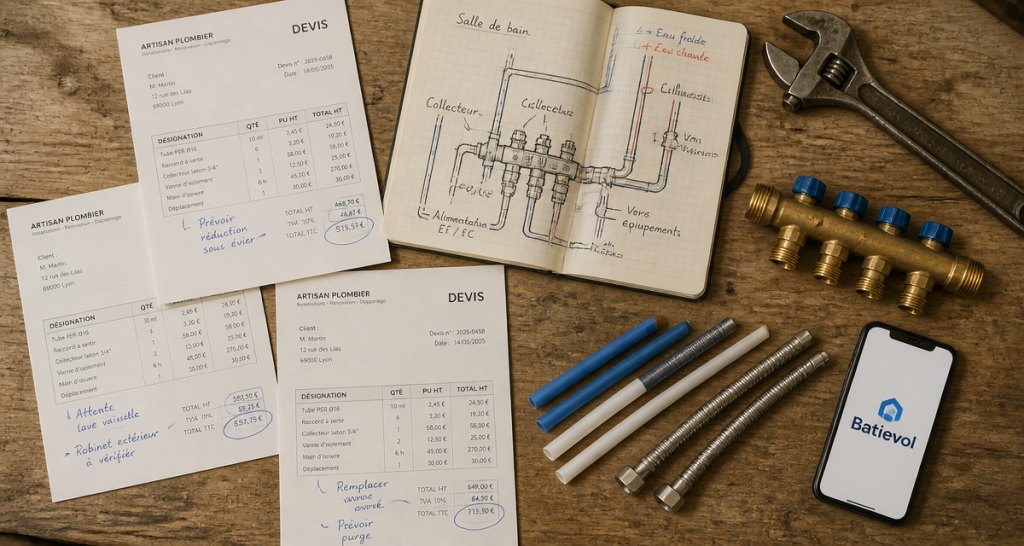 ARTISAN PLOMBIER
Installations - Rénovation - Dépannage
DEVIS
Client :
M. Martin
12 rue des Lilas
69000 Lyon
Devis n° : 2025-0458
Date : 14/05/2025
DÉSIGNATION QTÉ PU HT TOTAL HT
Tube PER Ø16 10 ml 2,45 € 24,50 €
Raccord à sertir 6 3,20 € 19,20 €
Collecteur laiton 3/4" 1 58,00 € 58,00 €
Vanne d'isolement 2 12,50 € 25,00 €
Main d'œuvre 6 h 45,00 € 270,00 €
Déplacement 1 30,00 € 30,00 €
TOTAL HT 468,70 €
TVA 10% 46,87 €
TOTAL TTC 515,57 €
Prévoir
réduction
sous évier
Salle de bain
Eau froide
Eau chaude
Collecteur
Vers
Alimentation
EF / EC
Vers
ARTISAN PLOMBIER
Installations - Rénovation - Dépannage
Client :
M. Martin
12 rue des Lilas
69000 Lyon
DÉSIGNATION QTÉ
Tube PER Ø16 10 ml 2,45 € 24,50 €
Raccord à sertir 3,20 € 19,20 €
Collecteur laiton 3/4" 58,00 € 58,00 €
Vanne d'isolement 25,00 €
Main d'œuvre 45,00 € 270,00 €
Déplacement 30,00 €
TOTAL HT
TVA 10%
TOTAL TTC
Attente
lave vaisselle
Robinet extérieur
à vérifier
ARTISAN PLOMBIER
Installations - Rénovation - Dépannage
DEVIS
Client :
M. Martin
12 rue des Lilas
69000 Lyon
Devis n° : 2025-0458
Date : 14/05/2025
DÉSIGNATION QTÉ PU HT TOTAL HT
Tube PER Ø16 10 ml 2,45 € 24,50 €
Raccord à sertir 6 3,20 € 19,20 €
Collecteur laiton 3/4" 1 58,00 € 58,00 €
Vanne d'isolement 2 12,50 € 25,00 €
Main d'œuvre 6 h 45,00 € 270,00 €
Déplacement 1 30,00 € 30,00 €
TOTAL HT 649,00 €
TVA 10% 64,90 €
TOTAL TTC
Remplacer
Prévoir
purge
Batievol